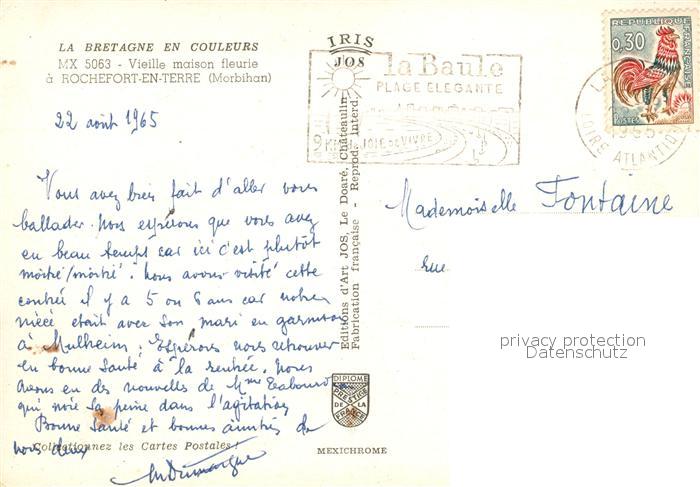 LA BRETAGNE EN COULEURS
MX 5063 - Vieille maison fleurie
à ROCHEFORT-EN-TERRE (Morbihan)
22 août 1965
Vous avez bien fait d'aller vous
ballader. Nous espérons que vous avez
eu beau temps car ici c'est plutôt
moitié/moitié. Nous avons visité cette
contrée il y a 5 ou 6 ans car notre
nièce était avec son mari en garnison
à Mulheim. Espérons nous retrouver
en bonne santé à la rentrée. Nous
avons eu des nouvelles de Mme
qui noie sa peine dans l'agitation
Bonne Santé et bonnes amitiés de
nous deux
Collectionnez les Cartes Postales !
IRIS
JOS
Editions d'Art JOS, Le Doaré, Châteaulin
Fabrication française - Reprod. interd.
DIPLOME
PRESTIGE
DE LA
FRANCE
MEXICHROME
la Baule
PLAGE ELEGANTE
9 KMS de JOIE de VIVRE
REPUBLIQUE FRANÇAISE
0,30
POSTES
1965
LOIRE ATLANTIQUE
Mademoiselle Fontaine
rue
privacy protection
Datenschutz